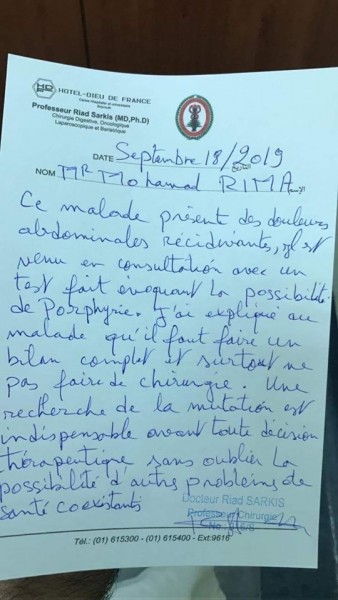 HOTEL-DIEU DE FRANCE
Centre Hospitalier et Universitaire
Beyrouth
Professeur Riad Sarkis (MD,Ph.D)
Chirurgie Digestive, Oncologique
Laparoscopique et Bariatrique
DATE Septembre 18/2019
NOM Mr Mohamad RIMA
Ce malade présent des douleurs
abdominales récidivantes, il est
venu en consultation avec un
test fait évoquant la possibilité
de Porphyrie. J'ai expliqué au
malade qu'il faut faire un
bilan complet et surtout ne
pas faire de chirurgie. Une
recherche de la mutation est
indispensable avant toute décision
thérapeutique sans oublier la
possibilité d'autres problèmes de
santé coexistants
Docteur Riad SARKIS
Professeur Chirurgie
Tél.: (01) 615300 - (01) 615400 - Ext:9616